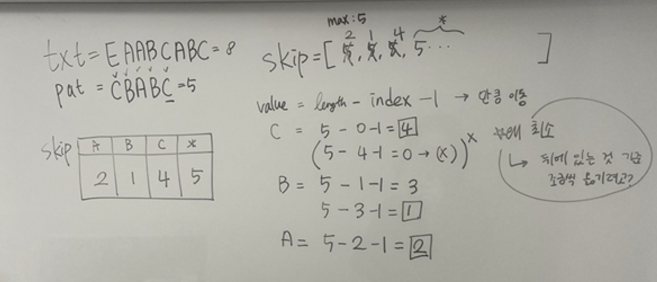 txt = EAABCABC = 8
pat = CBABC = 5
max : 5
2 1 4 *
skip = [ 5, 5, 5, 5 ... ]
value = length - index - 1 → 만큼 이동
C = 5 - 0 - 1 = 4
(5 - 4 - 1 = 0 → (x)) x
B = 5 - 1 - 1 = 3
5 - 3 - 1 = 1
A = 5 - 2 - 1 = 2
최소
↳ 뒤에 있는 것 기준
조금씩 옮기려고?
skip
A B C *
2 1 4 5